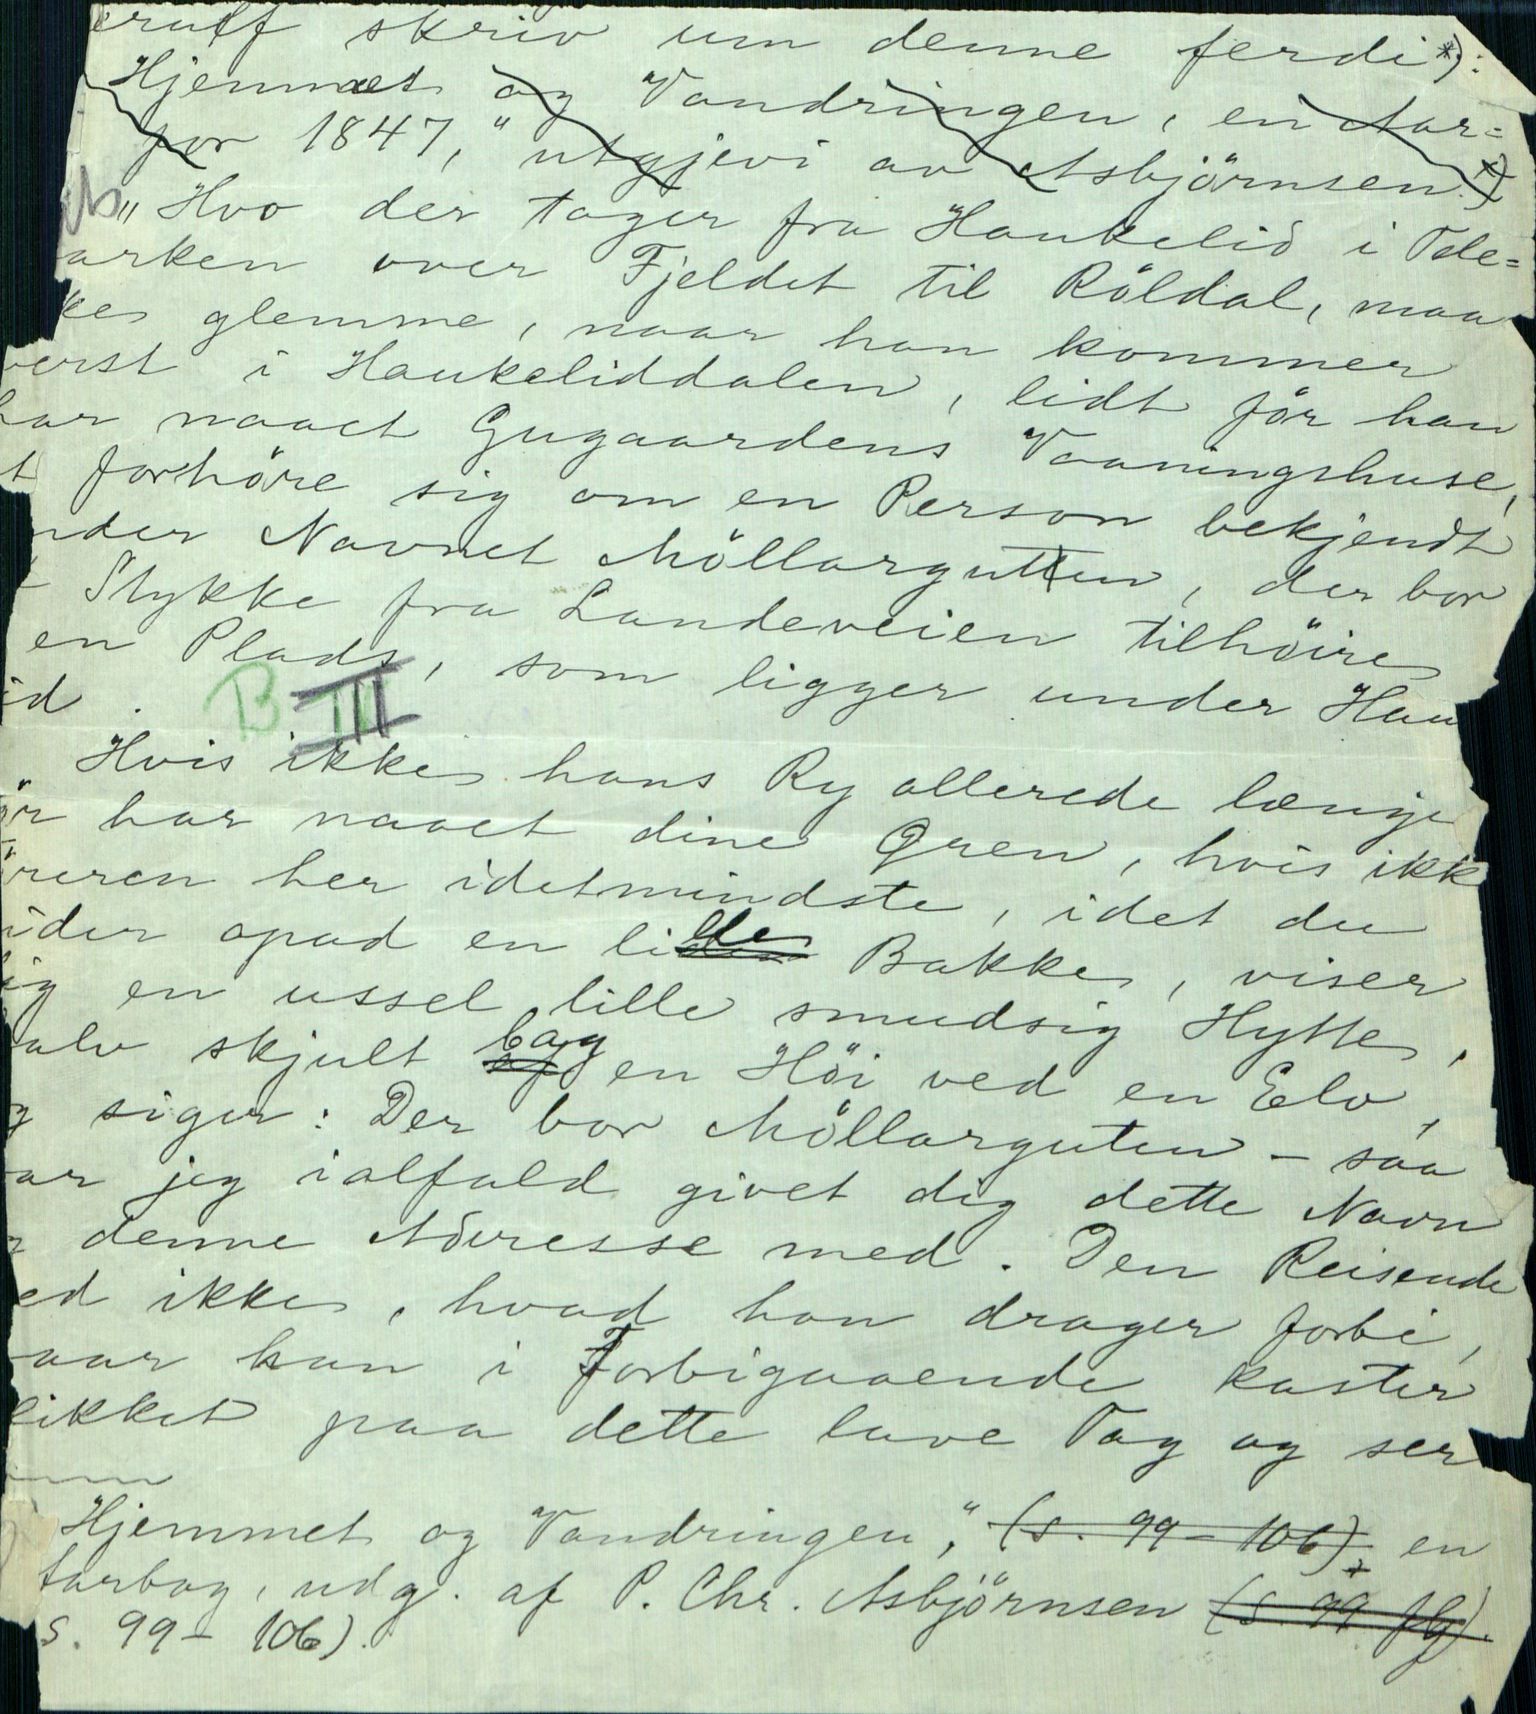 skriv um denne ferdi*):
Hjemmet og Vandringen, en Aar=
for 1847," utgjevi av Asbjörnsen.*)
"Hvo der tager fra Haukelid i Tele=
arken over Fjeldet til Röldal, maa
kes glemme, naar han kommer
verst i Haukeliddalen, lidtför han
har naaet Gugaardens Vaaningshuse,
t forhöre sig om en Person bekjendt
nder Navnet Möllargutten, der bor
t Stykke fra Landeveien tilhöire
en Plads, som ligger under Hau
id.
B III
Hvis ikke hans Ry allerede længe
ör har naaet dine Øren, hvis ikk
öreren her idetmindste, idet du
rider opad en lille Bakke, viser
ig en ussel, lille smudsig Hytte,
alv skjult bag en Höi ved en Elv,
g siger: Der bor Möllarguten – saa
ar jeg ialfald givet dig dette Navn
g denne Adresse med. Den Reisende
ed ikke, hvad han drager forbi,
aar han i Forbigaaende kaster
likket paa dette lave Tag og ser
Hjemmet og Vandringen," (s. 99–106), en
Aarbog, udg. af P. Chr. Asbjörnsen (s. 99 flg).
s. 99–106).